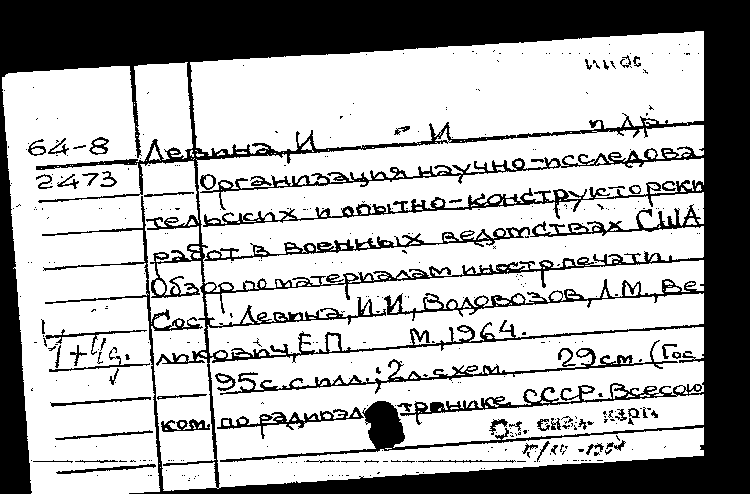 64-8 Левина, И И и др.
2473 Организация научно-исследова-
тельских и опытно-конструкторски
работ в военных ведомствах США
Обзор по материалам иностр. печати.
Сост.: Левина, И.И., Водовозов, Л.М., Ве-
ликович, Е.П. М., 1964.
95с. с илл.; 2л. схем. 29см. (Гос.
ком. по радиоэл тронике СССР. Всесою
См. след. карт.